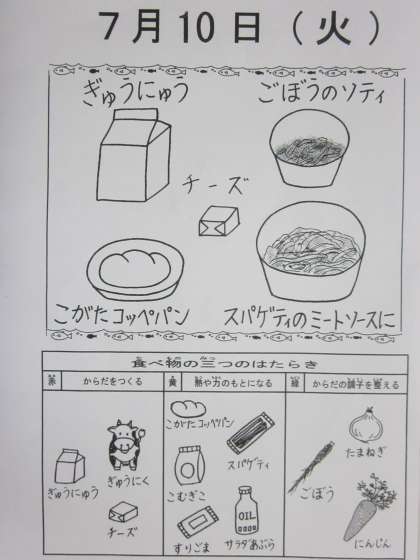 7月10日(火)
ぎゅうにゅう
ごぼうのソティ
チーズ
こがたコッペパン
スパゲティのミートソースに
食べ物の三つのはたらき
赤 からだをつくる
黄 熱や力のもとになる
緑 からだの調子を整える
ぎゅうにゅう
ぎゅうにく
チーズ
こがたコッペパン
スパゲティ
こむぎこ
すりごま
OIL
サラダあぶら
たまねぎ
ごぼう
にんじん